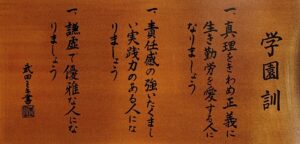 学園訓
一、真理をきわめ正義に
生き勤労を愛する人に
なりましょう
一、責任感の強いたくまし
い実践力のある人にな
りましょう
一、謙虚で優雅な人にな
りましょう